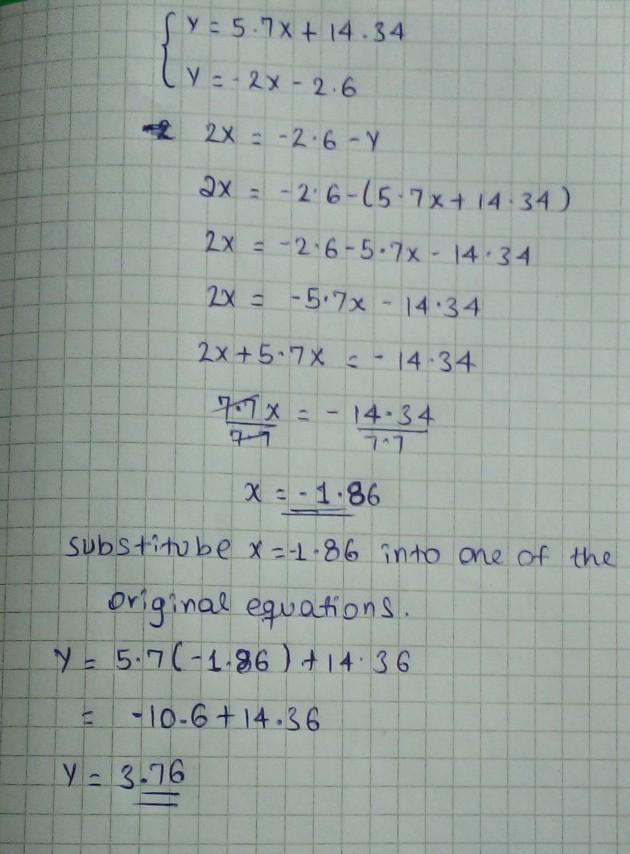 y = 5.7x + 14.34
y = -2x - 2.6
2x = -2.6 - y
2x = -2.6 - (5.7x + 14.34)
2x = -2.6 - 5.7x - 14.34
2x = -5.7x - 14.34
2x + 5.7x = -14.34
7.7x/7.7 = -14.34/7.7
x = -1.86
substitube x = -1.86 into one of the
original equations.
y = 5.7(-1.86) + 14.36
= -10.6 + 14.36
y = 3.76